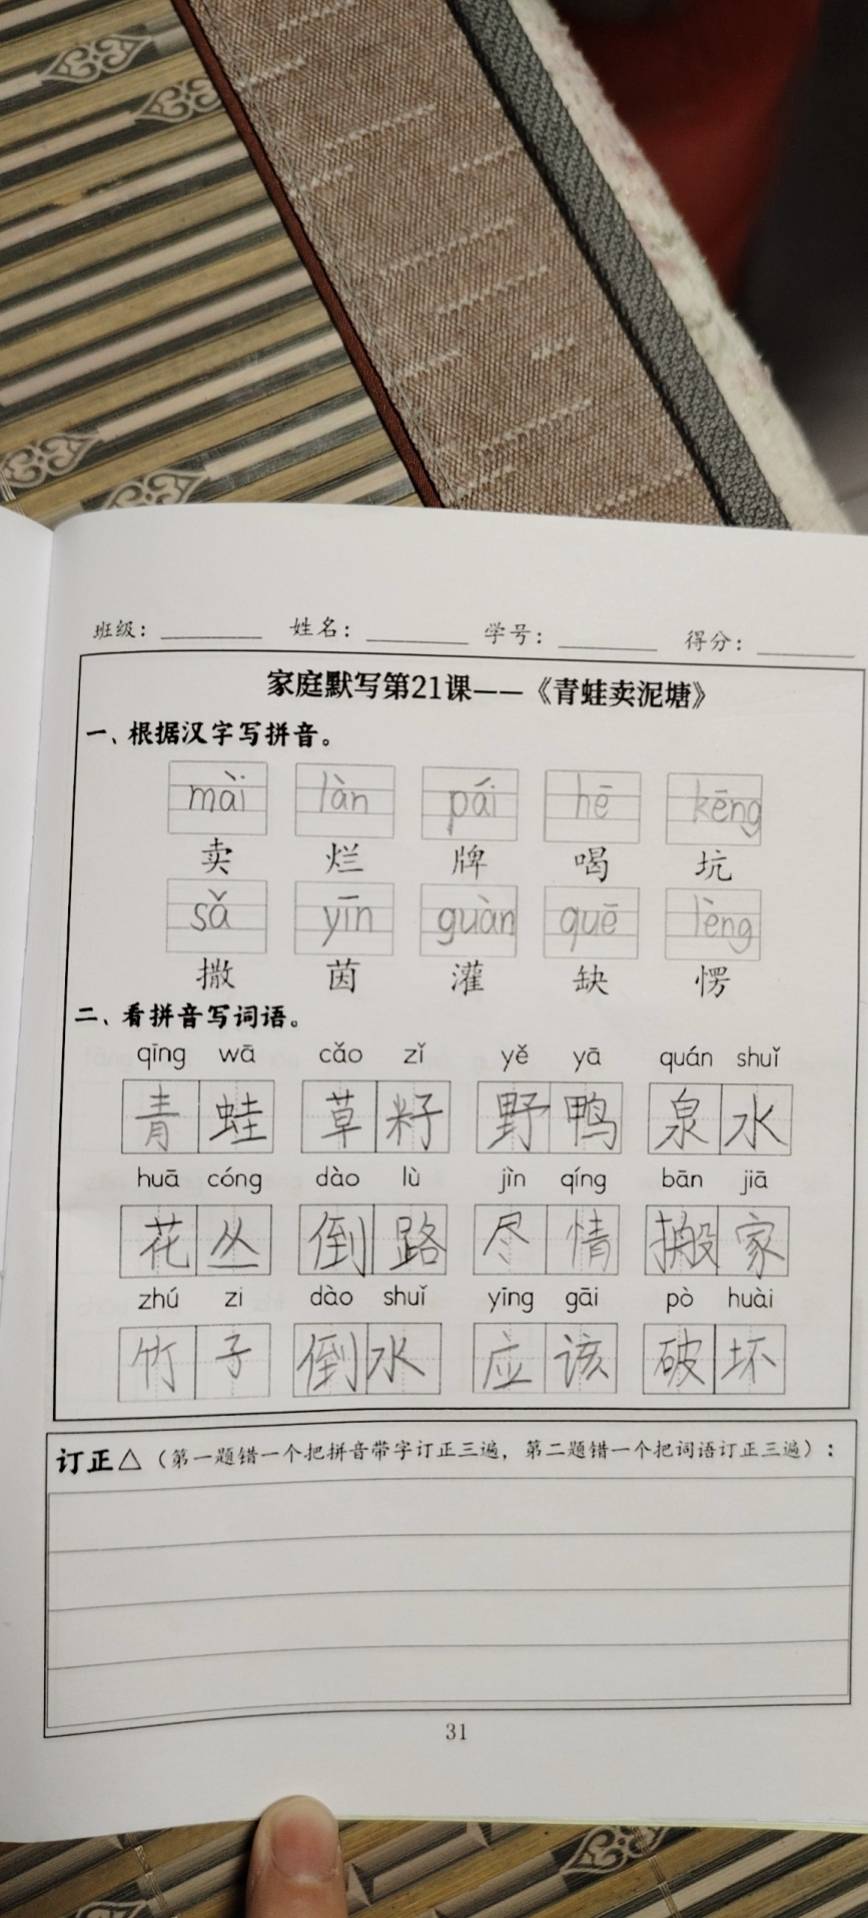 班级：______ 姓名：______ 学号：______ 得分：______
家庭默写第21课——《青蛙卖泥塘》
一、根据汉字写拼音。
mài làn pái hē kēng
卖 烂 牌 喝 坑
sǎ yīn guàn quē lèng
撒 茵 灌 缺 愣
二、看拼音写词语。
qīng wā cǎo zǐ yě yā quán shuǐ
青蛙 草籽 野鸭 泉水
huā cóng dào lù jìn qíng bān jiā
花丛 倒路 尽情 搬家
zhú zi dào shuǐ yīng gāi pò huài
竹子 倒水 应该 破坏
订正△（第一题错一个把拼音带字订正三遍，第二题错一个把词语订正三遍）：
31